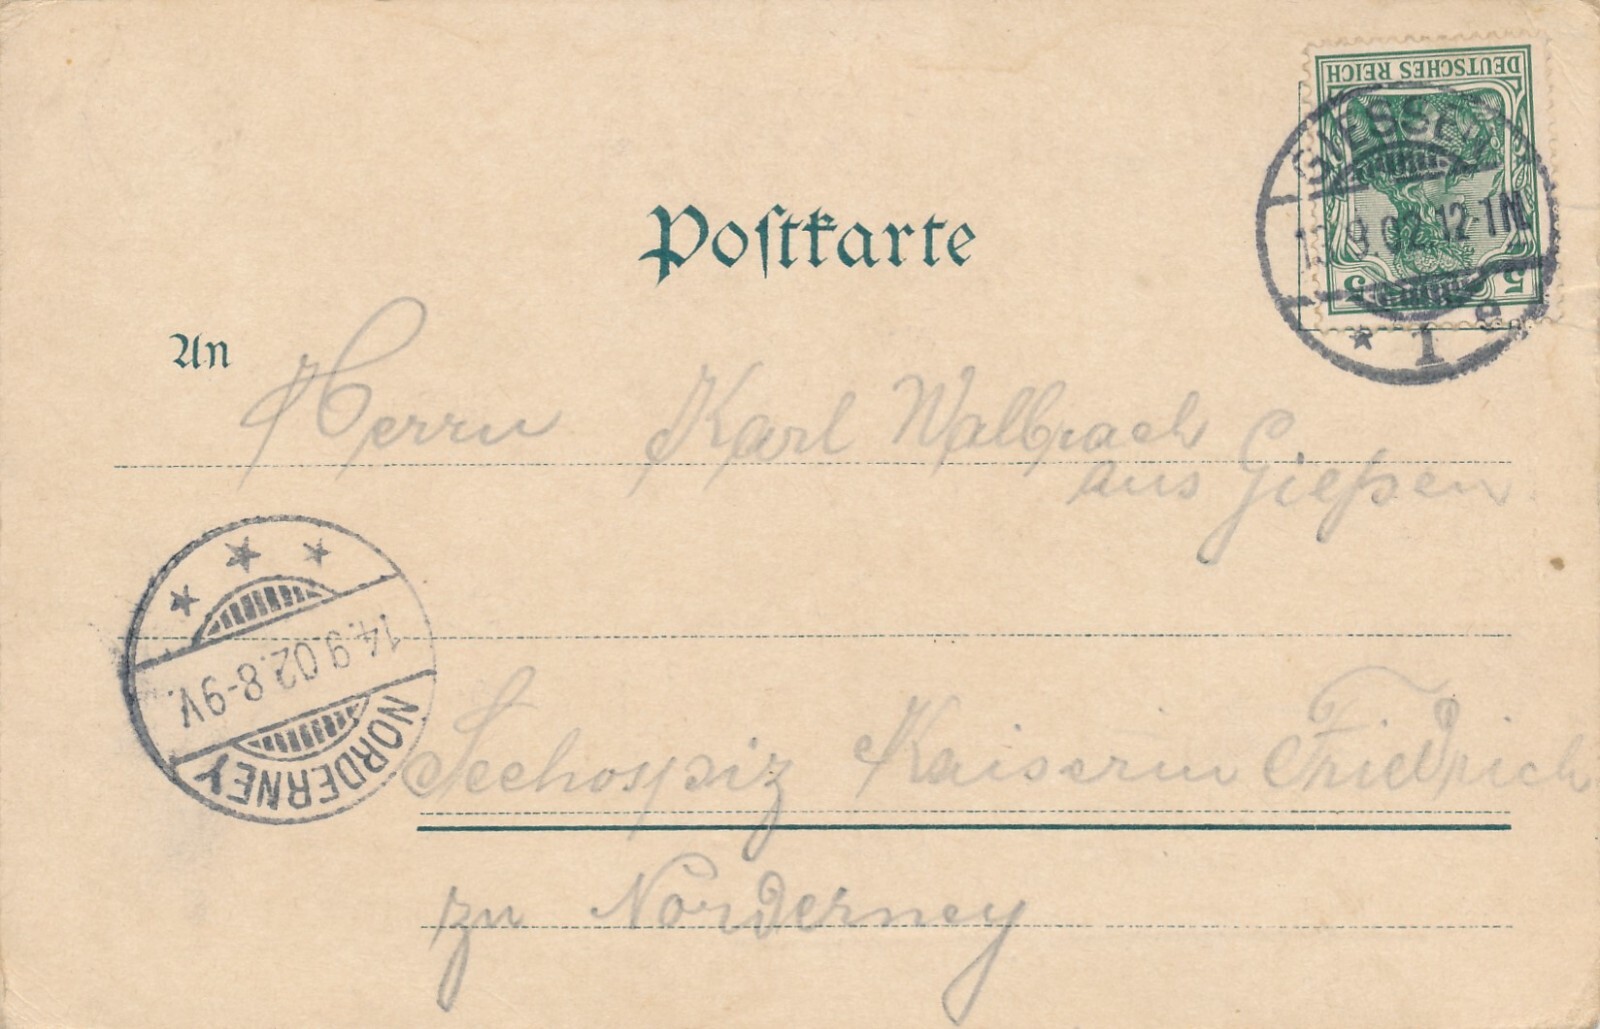 DEUTSCHES REICH
5 5
GIESSEN
13.9.02.12-1N.
* 1 e
Postkarte
An
Herrn Karl Walbrach
aus Gießen
14.9.02.8-9V.
NORDERNEY
Seehospiz Kaiserin Friedrich
zu Norderney